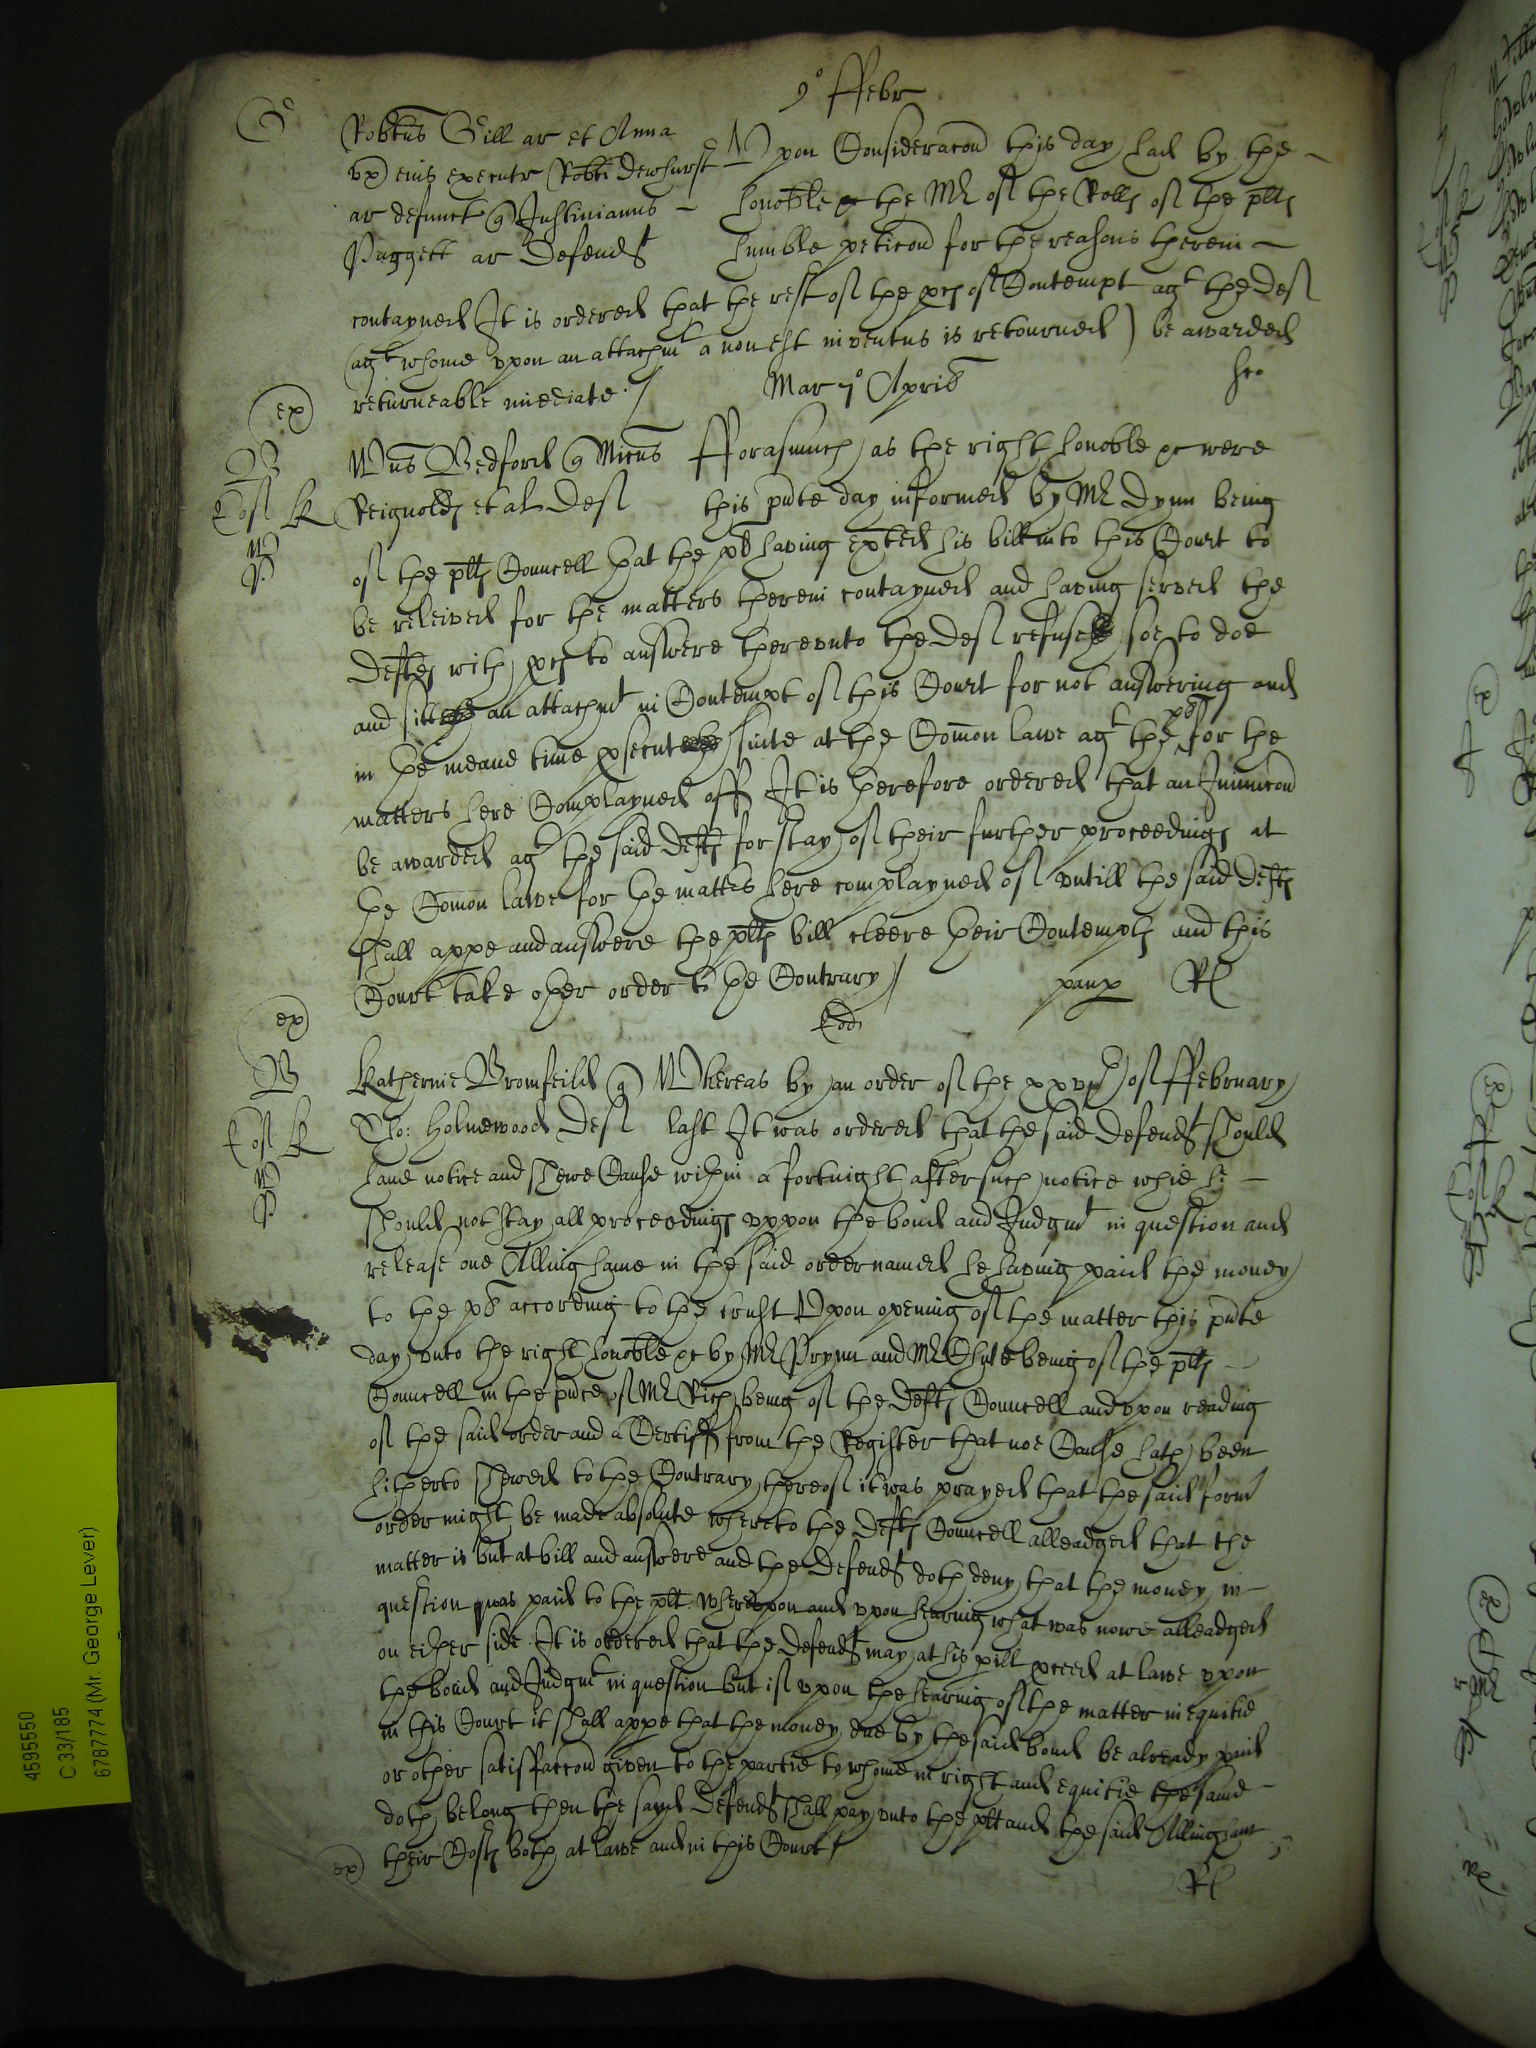 9° ffebr
G
Robtus Gill ar et Anna
ux eius executr Robti Dewhurst Upon Consideracon this day had by the
ar defunct q Justinianus honoble the Mr of the Rolls of the plts
Paggett ar Defendt humble peticon for the reasons therein
contayned It is ordered that the rest of the pces of Contempt agt the Def
(agt whome upon an attachmt a non est inventus is retourned) be awarded
returneable imediate
Mar 7° Aprilis
ex
B
Wms Bedford q Micus fforasmuch as the right honoble &c were
Reignolds et al Def this pnte day informed by Mr Dynn being
of the plts Councell that the pl having exhted his bill into this Court to
be releived for the matters therein contayned and having served the
Defts with pces to answere thereunto the Def refuse soe to doe
and sitt an attachmt in Contempt of this Court for not answering and
in the meane time psecute suite at the Comon lawe agt the pl for the
matters here Complayned off It is therefore ordered that an Iniunccon
be awarded agt the said Defts for stay of their further proceedings at
the Comon lawe for the matters here complayned of untill the said Defts
shall appe and answere the plts bill cleere their Contempts and this
Court take other order to the Contrary
paup Rl
Eod
ex
B
Katherine Bromfeild q Whereas by an order of the xxvth of ffebruary
Tho: Holmewood Def last It was ordered that the said Defendt should
have notice and shewe Cause within a fortnight after such notice whie he
should not stay all proceedings uppon the bond and Judgmt in question and
release one Allinghame in the said order named he having paid the money
to the pl according to the trust Upon opening of the matter this pnte
day unto the right honoble &c by Mr Prynn and Mr Chute being of the plts
Councell in the pnce of Mr Rich being of the Defts Councell and upon reading
of the said order and a Certiff from the Register that noe Cause hath been
hitherto shewed to the Contrary thereof it was prayed that the said form
order might be made absolute whereto the Defts Councell alleadged that the
matter is but at bill and answere and the Defendt doth deny that the money in
question was paid to the plt whereupon and upon hearing what was nowe alleadged
on either side It is ordered that the Defendt may at his pill pceed at lawe upon
the bond and Judgmt in question but if upon the hearing of the matter in equitie
in this Court it shall appe that the money due by the said bond be already paid
or other satisfaccon given to the partie to whome in right and equitie the same
doth belong then the sayd Defendt shall pay unto the plt and the said Allingham
their Costs both at lawe and in this Court
ex
Rl
4595550
C 33/185
6787774 (Mr. George Lever)